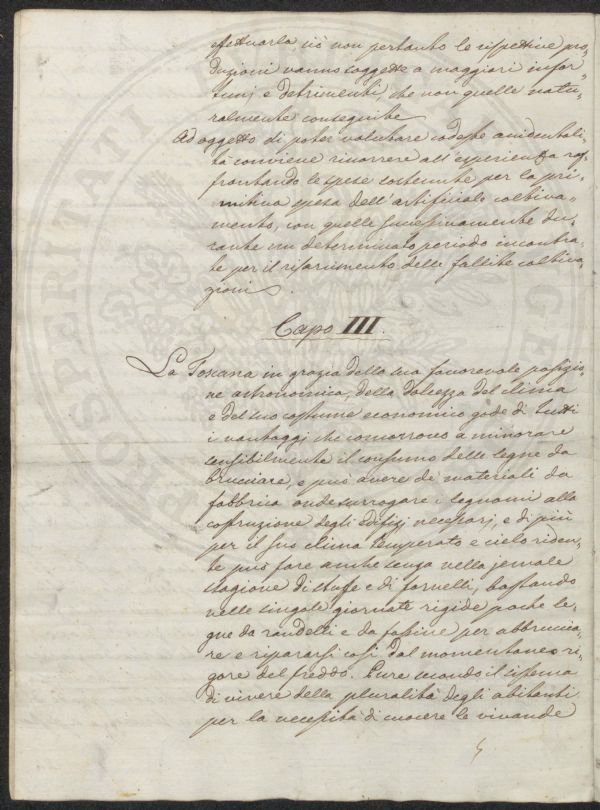 effettuarla, ciò non pertanto le rispettive pro-
duzioni vanno soggette a maggiori infor-
tunj e detrimenti, che non quelle natu-
ralmente conseguite
Ad oggetto di poter valutare codeste accidentali-
tà conviene ricorrere all'esperienza raf-
frontando le spese sostenute per la pri-
mitiva spesa dell'artificiale coltiva-
mento, con quelle successivamente du-
rante un determinato periodo incontra-
te per il risarcimento delle fallite coltiva-
zioni.
Capo III.
La Toscana in grazia della sua favorevole posizio-
ne astronomica, della dolcezza del clima
e del suo costume economico gode di tutti
i vantaggi che concorrono a minorare
sensibilmente il consumo delle legne da
bruciare, e può avere de' materiali da
fabbrica onde surrogare i legnami alla
costruzione degli edifizj necessarj, e di più
per il suo clima temperato e cielo riden-
te può fare anche senza nella jemale
stagione di stuffe e di fornelli, bastando
nelle singole giornate rigide poche le-
gne da randelli e da fassine per abbrucia-
re e ripararsi così dal momentaneo ri-
gore del freddo. Pure secondo il sistema
di vivere della pluralità degli abitanti
per la necessità di cuocere le vivande
PROSPERITATI